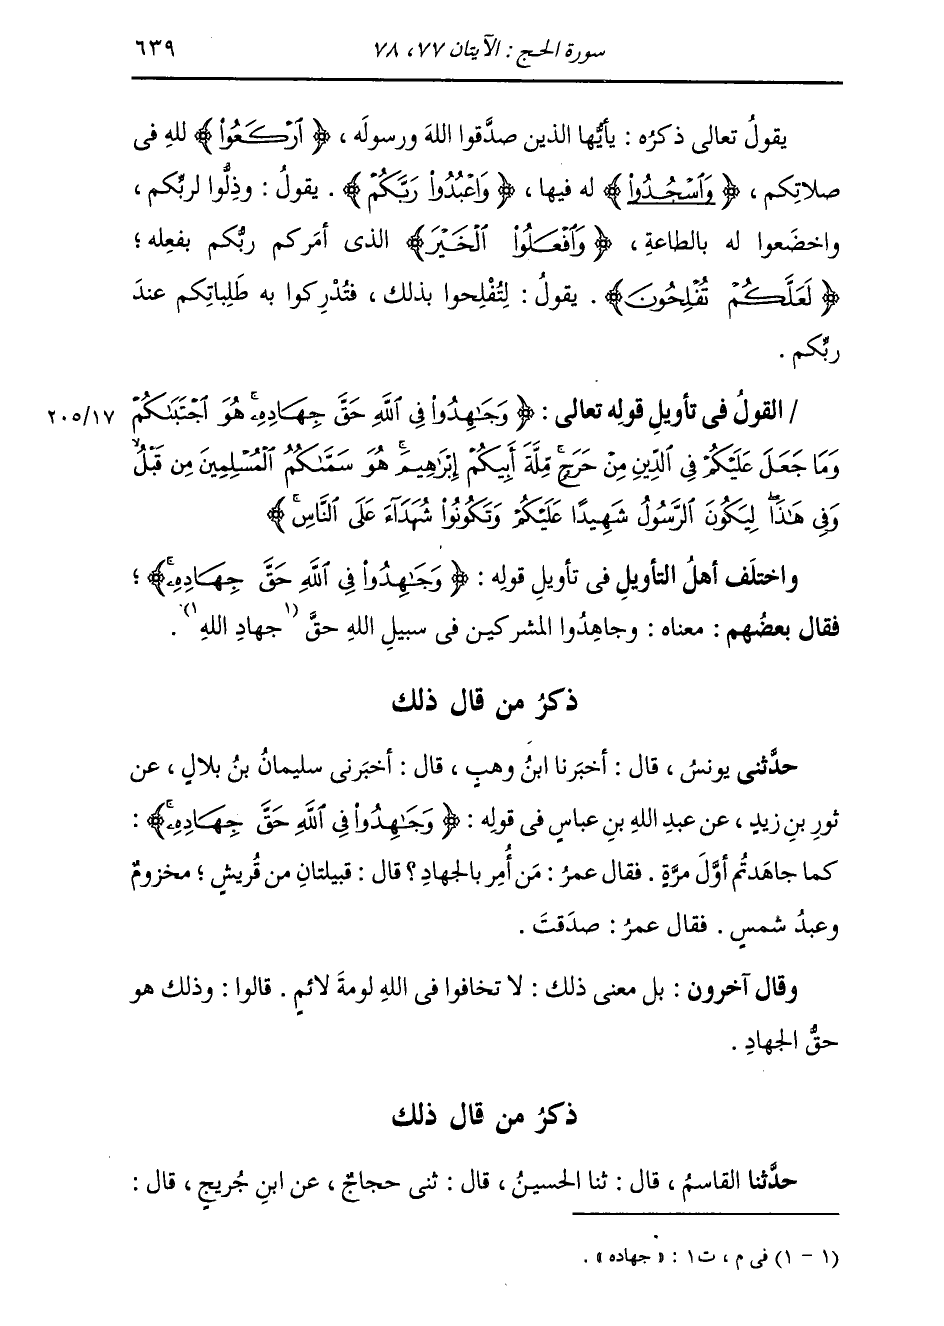 سورة الحج : الآيتان ٧٧، ٧٨
٦٣٩
يقولُ تعالى ذكرُه : يأيُّها الذين صدَّقوا اللهَ ورسولَه ، ﴿ ٱرْكَعُوا۟ ﴾ للهِ فى
صلاتِكم ، ﴿ وَٱسْجُدُوا۟ ﴾ له فيها ، ﴿ وَٱعْبُدُوا۟ رَبَّكُمْ ﴾ . يقولُ : وذِلُّوا لربِّكم ،
واخضَعوا له بالطاعةِ ، ﴿ وَٱفْعَلُوا۟ ٱلْخَيْرَ ﴾ الذى أمَركم ربُّكم بفعلِه ؛
﴿ لَعَلَّكُمْ تُفْلِحُونَ ﴾ . يقولُ : لِتُفْلِحوا بذلك ، فتُدْرِكوا به طَلِباتِكم عندَ
ربِّكم .
/ القولُ فى تأويلِ قولِه تعالى : ﴿ وَجَٰهِدُوا۟ فِى ٱللَّهِ حَقَّ جِهَادِهِۦۚ هُوَ ٱجْتَبَىٰكُمْ
٢٠٥/١٧
وَمَا جَعَلَ عَلَيْكُمْ فِى ٱلدِّينِ مِنْ حَرَجٍۚ مِّلَّةَ أَبِيكُمْ إِبْرَٰهِيمَۚ هُوَ سَمَّىٰكُمُ ٱلْمُسْلِمِينَ مِن قَبْلُ
وَفِى هَٰذَا لِيَكُونَ ٱلرَّسُولُ شَهِيدًا عَلَيْكُمْ وَتَكُونُوا۟ شُهَدَآءَ عَلَى ٱلنَّاسِۚ ﴾
واختلَف أهلُ التأويلِ فى تأويلِ قولِه : ﴿ وَجَٰهِدُوا۟ فِى ٱللَّهِ حَقَّ جِهَادِهِۦۚ ﴾ ؛
فقال بعضُهم : معناه : وجاهِدُوا المشركين فى سبيلِ اللهِ حقَّ (١جهادِ اللهِ١) .
ذكرُ من قال ذلك
حدَّثنى يونسُ ، قال : أخبَرنا ابنُ وهبٍ ، قال : أخبَرنى سليمانُ بنُ بلالٍ ، عن
ثورِ بنِ زيدٍ ، عن عبدِ اللهِ بنِ عباسٍ فى قولِه : ﴿ وَجَٰهِدُوا۟ فِى ٱللَّهِ حَقَّ جِهَادِهِۦۚ ﴾ :
كما جاهَدتُم أوَّلَ مرَّةٍ . فقال عمرُ : مَن أُمِر بالجهادِ ؟ قال : قبيلتانِ من قُريشٍ ؛ مخزومٌ
وعبدُ شمسٍ . فقال عمرُ : صدَقتَ .
وقال آخرون : بل معنى ذلك : لا تخافوا فى اللهِ لومةَ لائمٍ . قالوا : وذلك هو
حقُّ الجهادِ .
ذكرُ من قال ذلك
حدَّثنا القاسمُ ، قال : ثنا الحسينُ ، قال : ثنى حجاجٌ ، عن ابنِ جُريجٍ ، قال :
(١ - ١) فى م ، ت١ : « جهاده » .